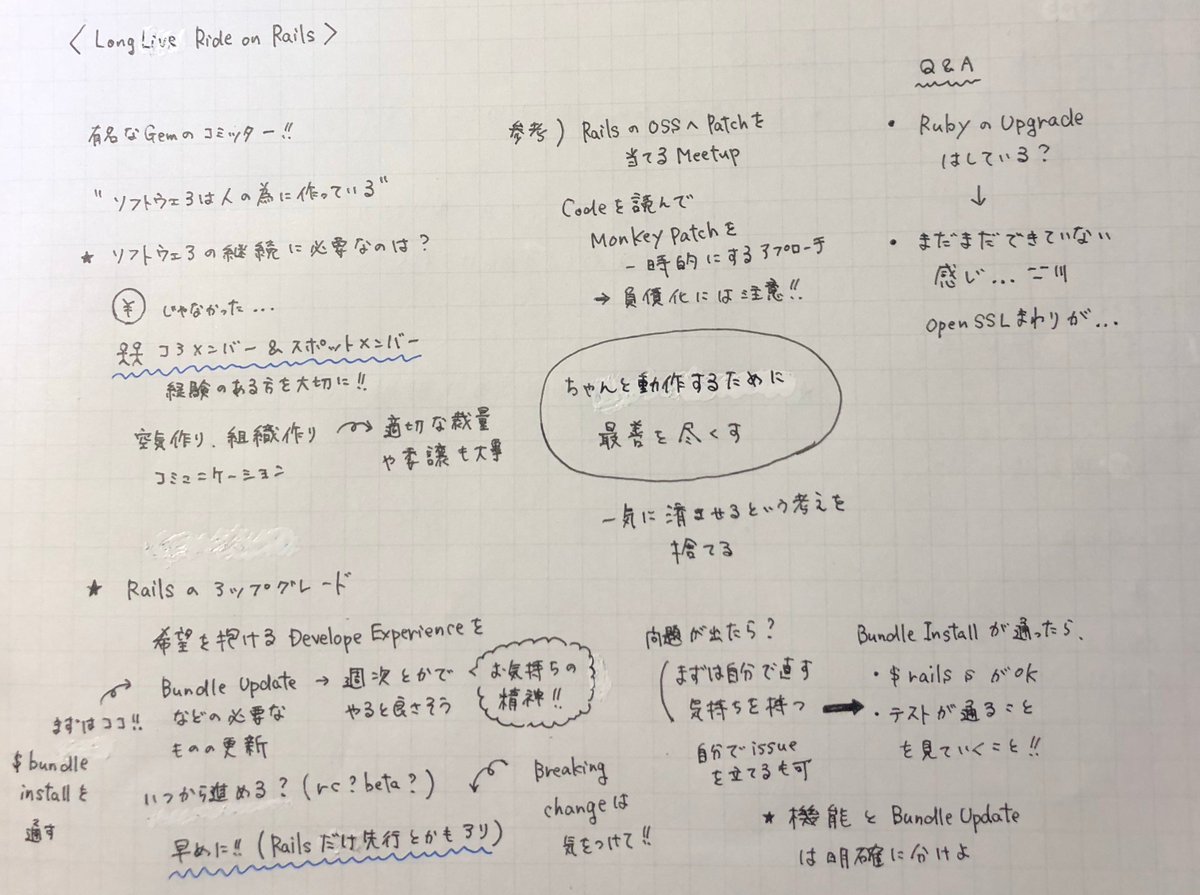 < Long Live Ride on Rails >
有名なGemのコミッター!!
"ソフトウェアは人の為に作っている"
★ ソフトウェアの継続に必要なのは?
¥ じゃなかった...
コアメンバー & スポットメンバー
経験のある方を大切に!!
空気作り、組織作り
コミュニケーション
適切な裁量
や委譲も大事
★ Railsのアップグレード
希望を抱ける Develope Experienceを
まずはココ!!
$ bundle
installを
通す
Bundle Update
などの必要な
ものの更新
→ 週次とかで
やると良さそう
お気持ちの
精神!!
いつから進める? (rc? beta?)
早めに!! (Railsだけ先行とかもアリ)
Breaking
change は
気をつけて!!
参考) RailsのOSSへPatchを
当てるMeetup
Codeを読んで
Monkey Patchを
一時的にするアプローチ
→ 負債化には注意!!
ちゃんと動作するために
最善を尽くす
一気に済ませるという考えを
捨てる
問題が出たら?
まずは自分で直す
気持ちを持つ
自分でissue
を立てるも可
Bundle Installが通ったら、
・$ rails s がok
・テストが通ること
を見ていくこと!!
★ 機能とBundle Update
は明確に分けよ
Q & A
• RubyのUpgrade
はしている?
↓
• まだまだできていない
感じ...
OpenSSLまわりが...